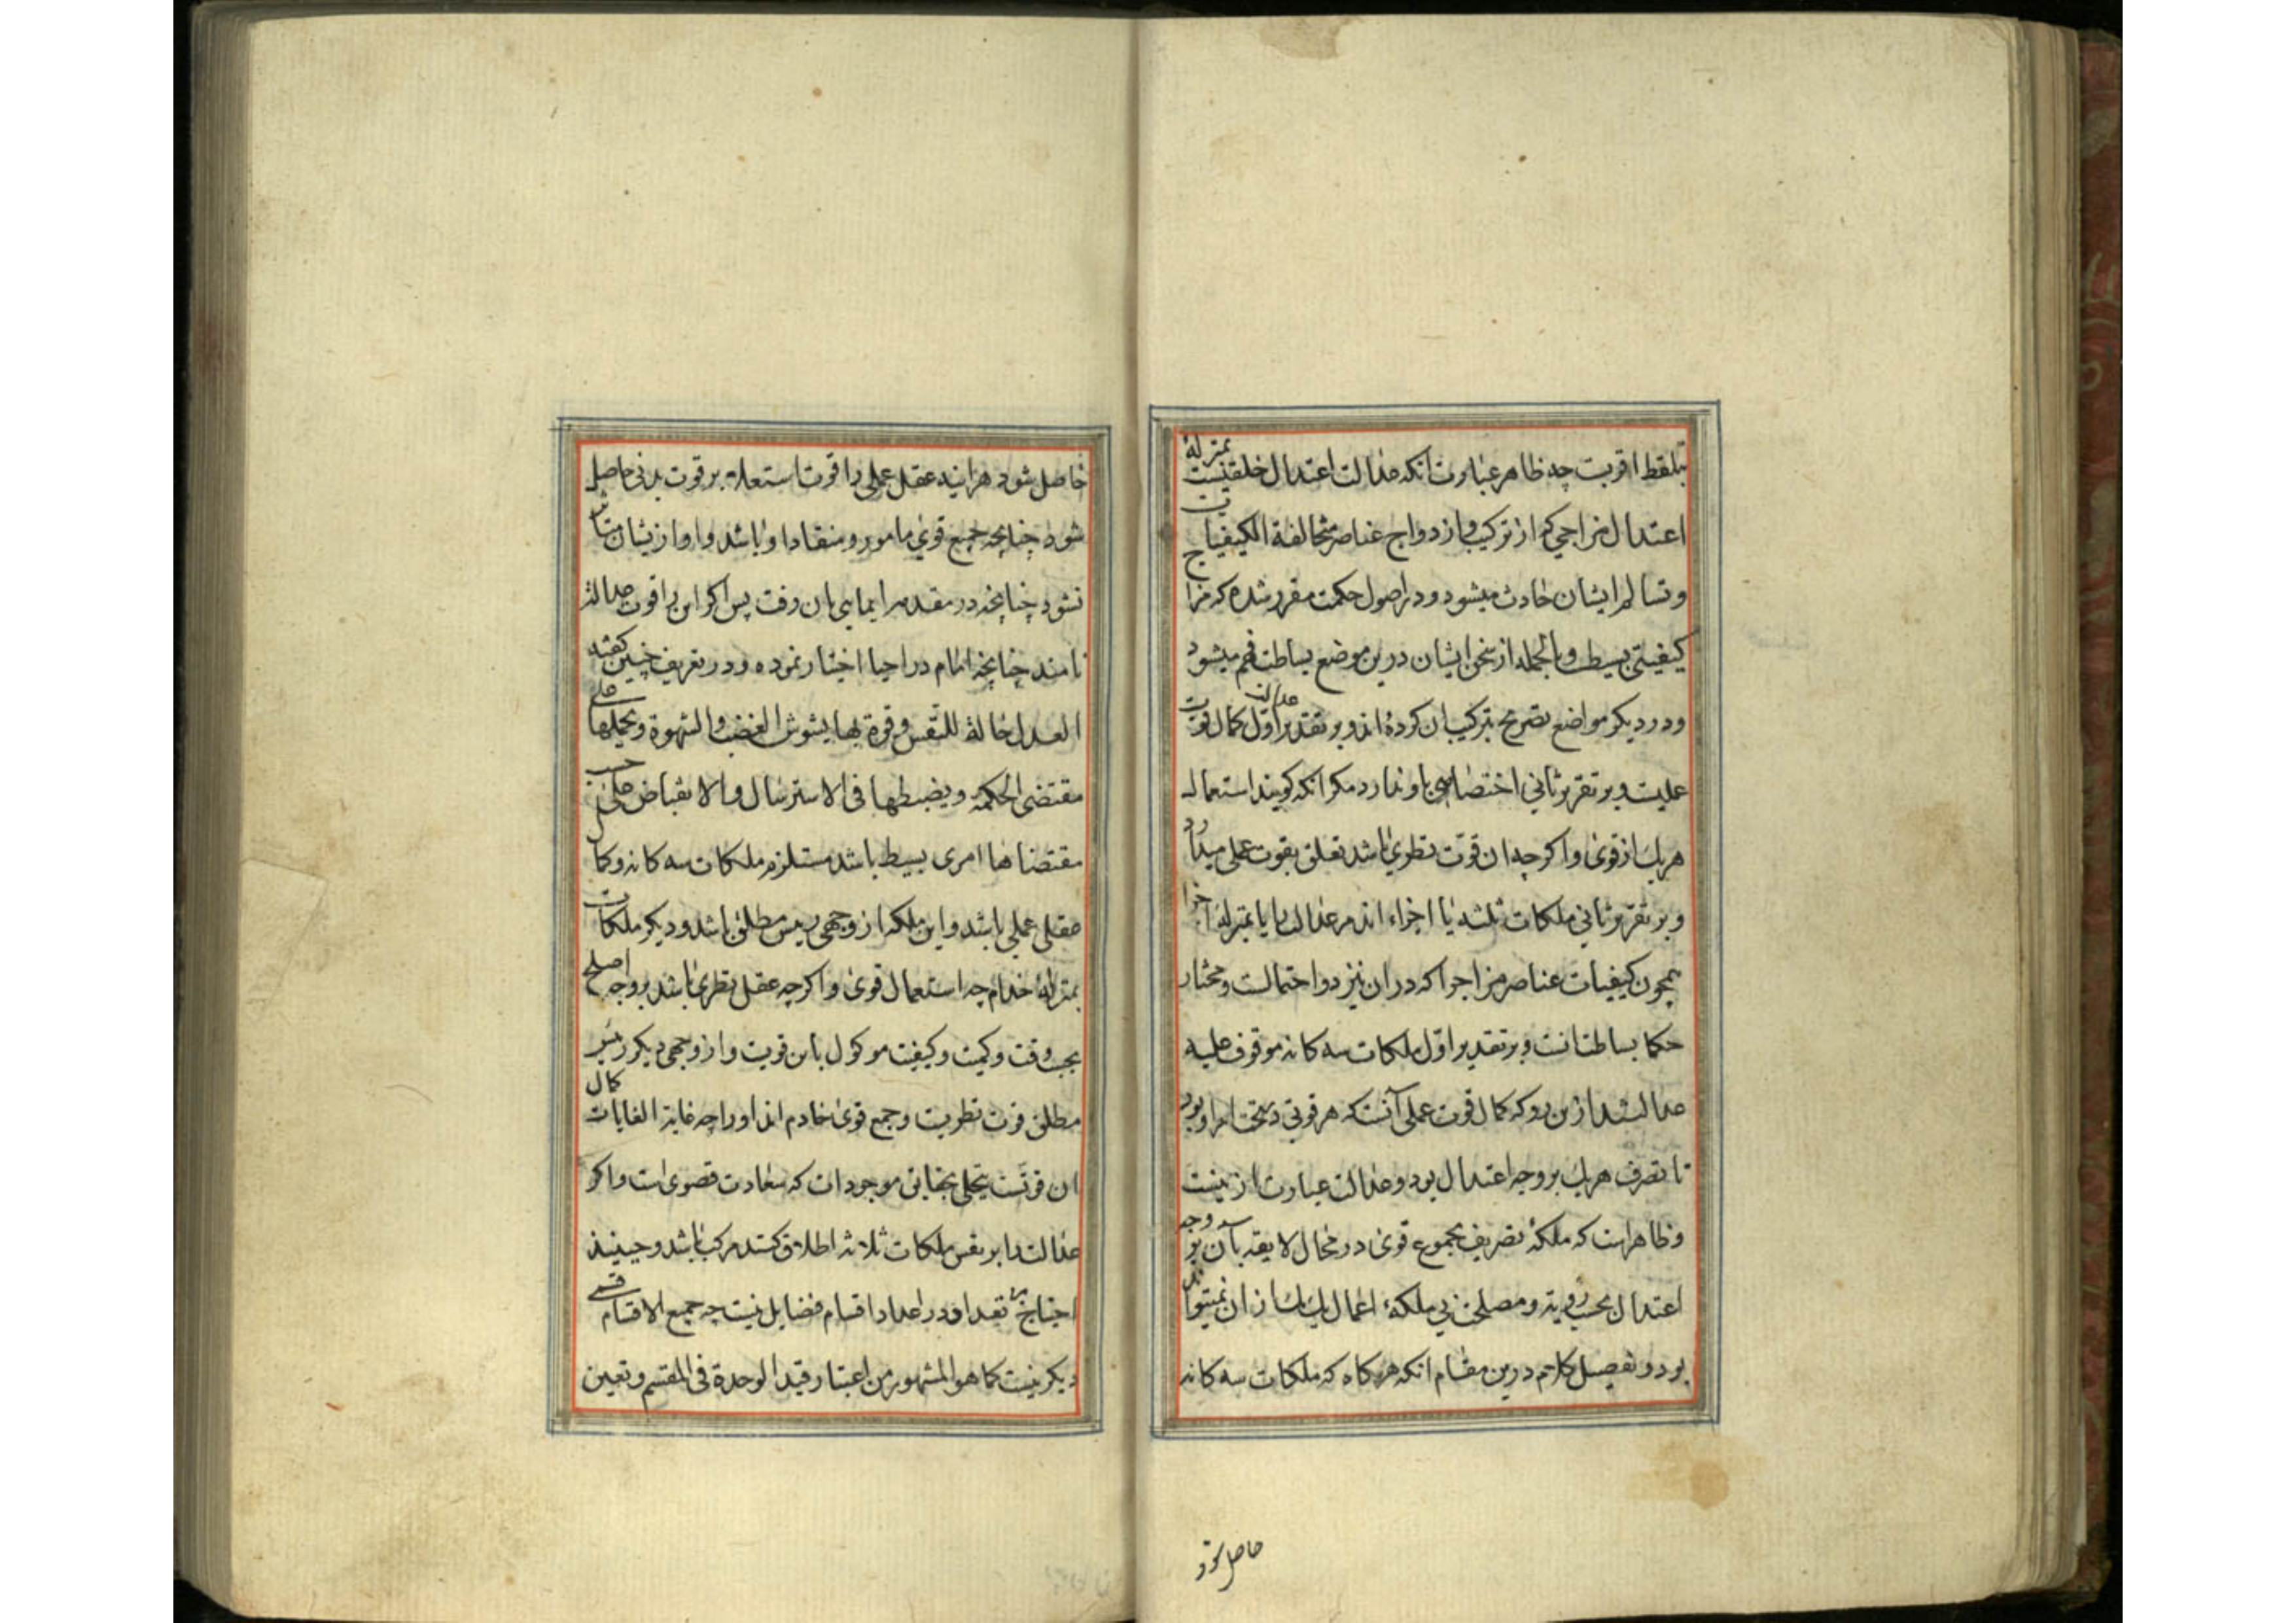 بلفظ اقربت چه ظاهر عبارت انکه عدالت اعتدال خلقیست بمنزلهٔ
اعتدال مزاجی که از ترکیب و ازدواج عناصر متخالفة الکیفیات
و تسالم ایشان حادث میشود و در اصول حکمت مقرر شده که مزاج
کیفیتی بسیط و بالجمله از سخن ایشان درین موضع بساطت فهم میشود
و در دیکر مواضع تصریح بترکیب ان کرده‌اند و بر تقدیر اوّل عدالت کمال قوت
عملیت و بر تقریر ثانی اختصاصی باو ندارد مکر انکه کویند استعمال
هریک از قوی و اکرچه ان قوّت نظری باشد تعلق بقوت عملی میدارد
و بر تقریر ثانی ملکات ثلثه یا اجزاء اند مر عدالت را یا بمنزلهٔ اجزا
همچون کیفیات عناصر مزاج را که در ان نیز دو احتمالت و مختار
حکما بساطت انت و بر تقدیر اوّل ملکات سه کانه موقوف علیه
عدالت شد ازین رو که کمال قوت عملی آنست که هر قوتی در تحت امر او بود
تا تصرف هریک بر وجه اعتدال بود و عدالت عبارت ازینست
و ظاهرست که ملکهٔ تصریف مجموع قوی در محال لایقه بآن بر وجه
اعتدال بحسب رویّه و مصلحت بی ملکهٔ اعمال یک یک از ان نمیتواند
بود و تفصیل کلام درین مقام انکه هرکاه که ملکات سه کانه
حاصل شود
حاصل شود هراینه عقل عملی را قوت استعلاء بر قوت بدنی حاصل
شود چنانچه جمیع قوی مامور و منقاد او باشد و او ازیشان متاثر
نشود چنانچه در مقدمه ایمایی بان رفت پس اکر این را قوت عدالت
نامند چنانچه امام در احیا اختیار نموده و در تعریف چنین کفته
العدل حالة للنّفس و قوة بها یسوس الغضب والشهوة و یحملها علی
مقتضی الحکمة و یضبطها فی الاسترسال والانقباض علی حسب
مقتضاها امری بسیط باشد مستلزم ملکات سه کانه و کمال
عقلی عملی باشد و این ملکه از وجهی رییس مطلق باشد و دیکر ملکات
بمنزلهٔ خدام چه استعمال قوی و اکرچه عقل نظری باشد بر وجه اصلح
بحسب وقت و کمیت و کیفیت موکول باین قوبت و از وجهی دیکر رئیس
مطلق قوت نظریت و جمیع قوی خادم اند او را چه غایة الغایات کمال
ان قوتست یعنی تحلی بحقایق موجودات که سعادت قصوی است و اکر
عدالت را بر نفس ملکات ثلاثه اطلاق کنند مرکب باشد و حینئذ
احتیاج بتعداد او در اعداد اقسام فضایل نیست چه جمیع الاقسام قسمی
دیکر نیست کما هو المشهور من اعتبار قید الوحدة فی المقسم و تعین